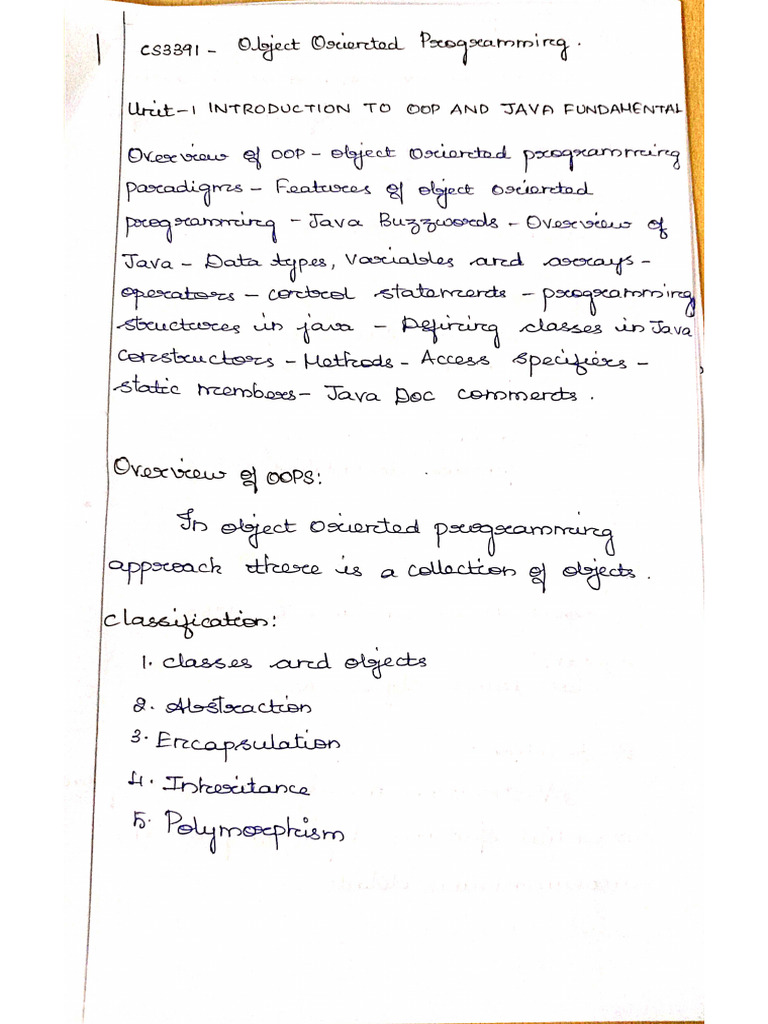 CS3391 - Object Oriented Programming.
Unit-1 INTRODUCTION TO OOP AND JAVA FUNDAMENTAL
Overview of OOP - object oriented programming
paradigms - Features of object oriented
programming - Java Buzzwords - Overview of
Java - Data types, variables and arrays -
operators - control statements - programming
structures in java - Defining classes in Java
constructors - Methods - Access specifiers -
static members - Java Doc comments.
Overview of OOPS:
In object oriented programming
approach there is a collection of objects.
classification:
1. classes and objects
2. Abstraction
3. Encapsulation
4. Inheritance
5. Polymorphism